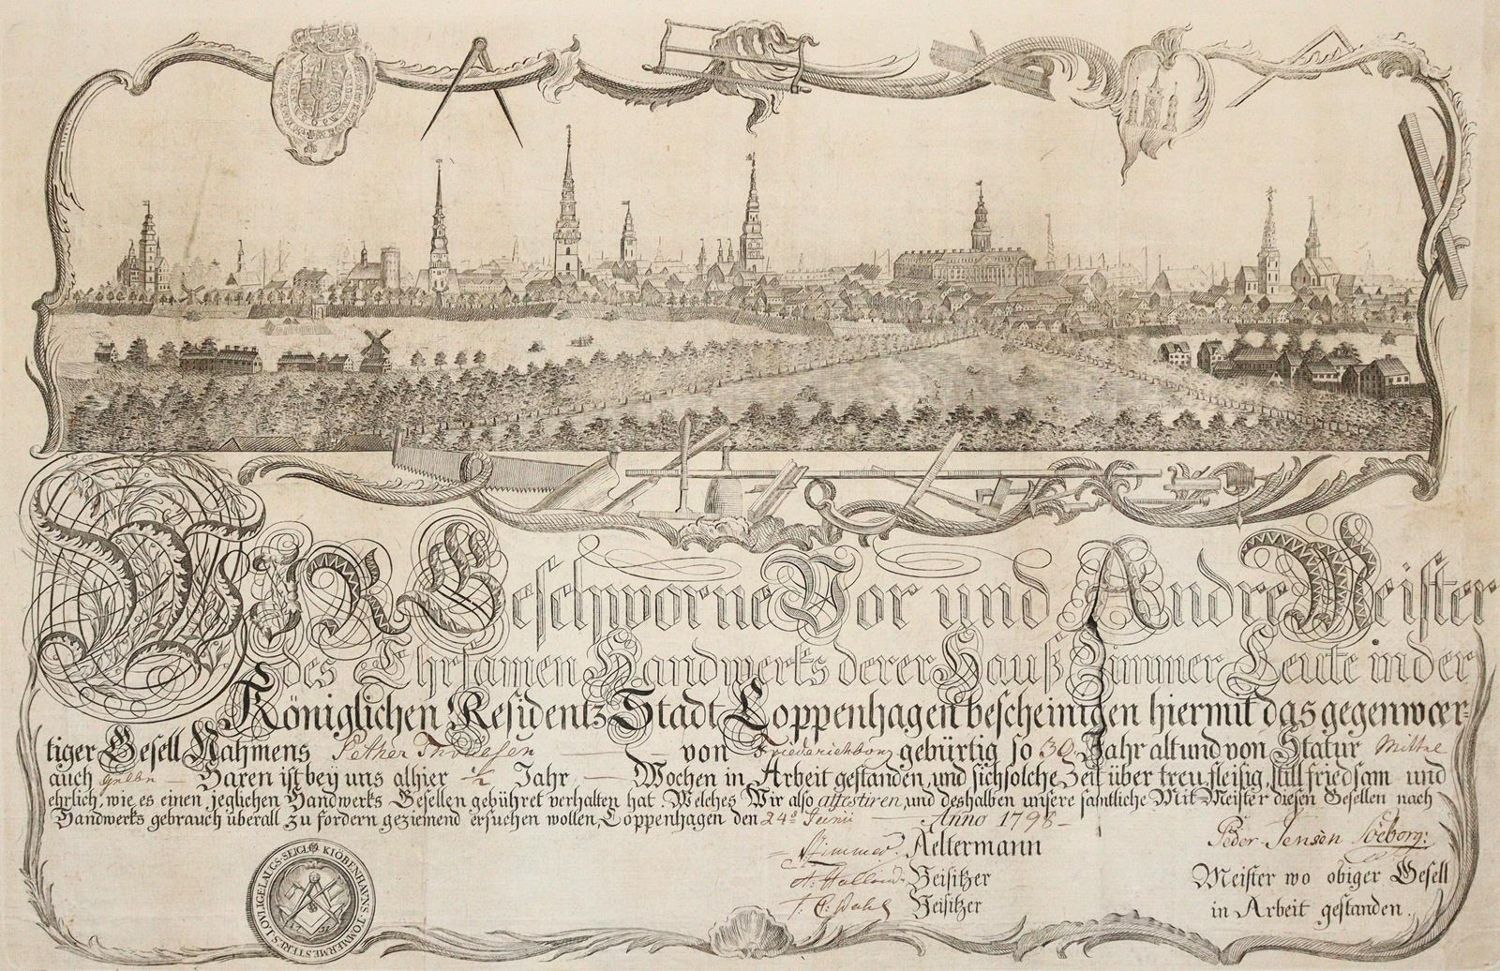 WIR Geschworne Vor und Andre Meister
des Ehrsamen Handwerks derer Hauß Zimmer Leute in der
Königlichen Residentz Stadt Coppenhagen bescheinigen hiermit das gegenwær-
tiger Gesell Nahmens Pether von Friederichborg gebürtig so 30 Jahr alt und von Statur Mittel
auch Haren ist bey uns alhier ½ Jahr Wochen in Arbeit gestanden, und sich solche Zeit über treu, fleisig, still friedsam und
ehrlich, wie es einen jeglichen Handwerks Gesellen gebühret verhalten hat, Welches Wir also attestiren, und deshalben unsere samtliche Mit Meister diesen Gesellen nach
Handwerks gebrauch überall zu fordern geziemend ersuchen wollen, Coppenhagen den 24 Junii Anno 1798
Zimmer Aeltermann
Beisitzer
Beisitzer
Peder Jensen
Meister wo obiger Gesell
in Arbeit gestanden.
KIÖBENHAVNS TÖMMERMESTERES LOVLIGE LAUGS SEIGL